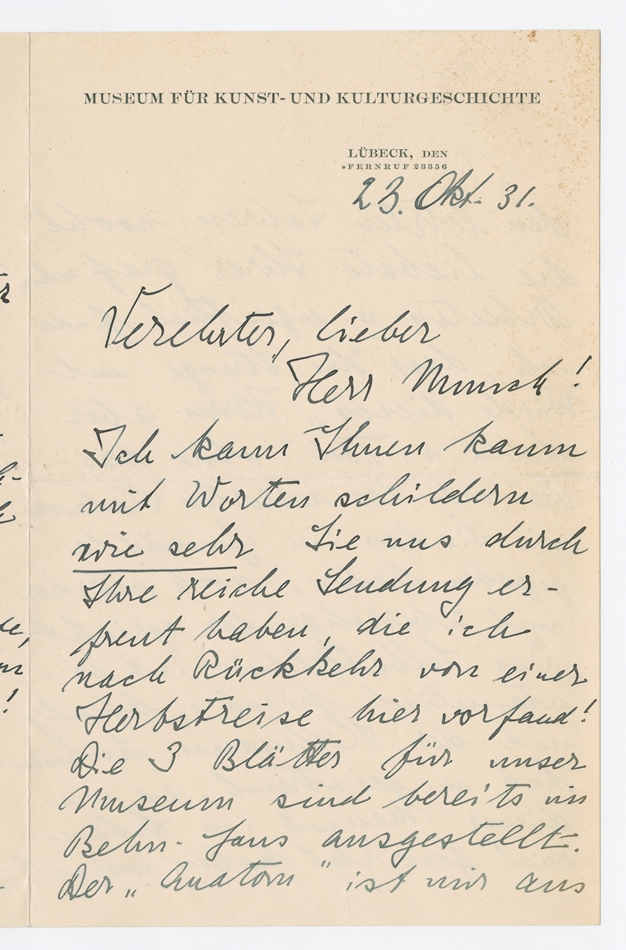 MUSEUM FÜR KUNST- UND KULTURGESCHICHTE
LÜBECK, DEN
*FERNRUF 23356
23. Okt. 31.
Verehrter, lieber
Herr Munch!
Ich kann Ihnen kaum
mit Worten schildern
wie sehr Sie uns durch
Ihre reiche Sendung er-
freut haben, die ich
nach Rückkehr von einer
Herbstreise hier vorfand!
Die 3 Blätter für unser
Museum sind bereits im
Behn-Haus ausgestellt.
Der „Anatom" ist mir aus